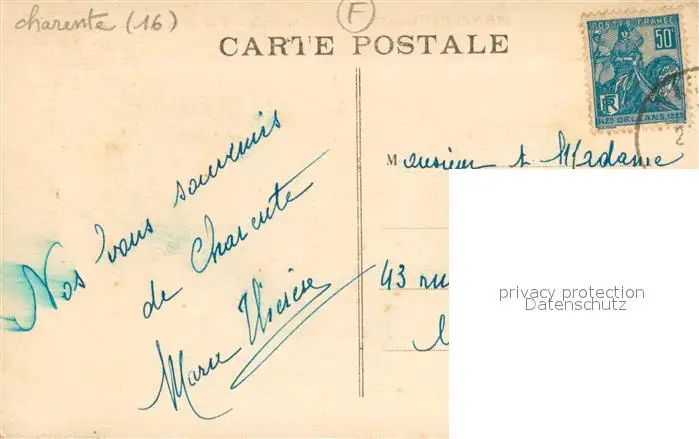 charente (16)
F
CARTE POSTALE
POSTES FRANCE
50c
RF
1429 ORLEANS 1929
Nos bons souvenirs
de Charente
Marie Thérèse
Monsieur & Madame
43 ru
privacy protection
Datenschutz